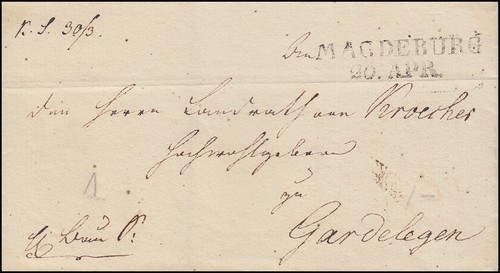 K. S. 30/3.
An MAGDEBURG
20. APR.
den Herrn Landrath von Kroecher
Hochwohlgeboren
zu
Gardelegen
Bau S.
1